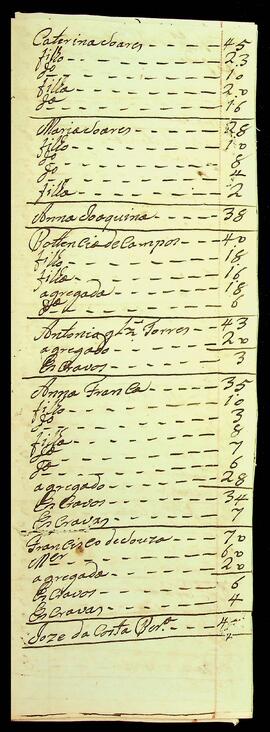 Caterina Soares - - - - - 45
filho - - - - - - 23
Jo - - - - - - 10
filha - - - - - - 20
Ja - - - - - - 16
Maria Soares - - - - - 28
filho - - - - - - 10
Jo - - - - - - 8
Jo - - - - - - 4
filha - - - - - - 2
Anna Joaquina - - - - - 38
Pottencia de Campos - - - 40
filho - - - - - - 18
filha - - - - - - 16
agregada - - - - - 18
Ja - - - - - - 6
Antonia Torres - - - 43
agregado - - - - - 20
Escravos - - - - - 3
Anna Franca - - - - - 35
filho - - - - - - 10
Jo - - - - - - 3
Jo - - - - - - 8
filha - - - - - - 7
Ja - - - - - - 6
agregado - - - - - 28
Escravos - - - - - 34
Escravas - - - - - 7
Francisco de Souza - - - 70
Mer - - - - - - 60
agregada - - - - - 20
Escravos - - - - - 6
Escravas - - - - - 4
Joze da Costa Per.ª - - -